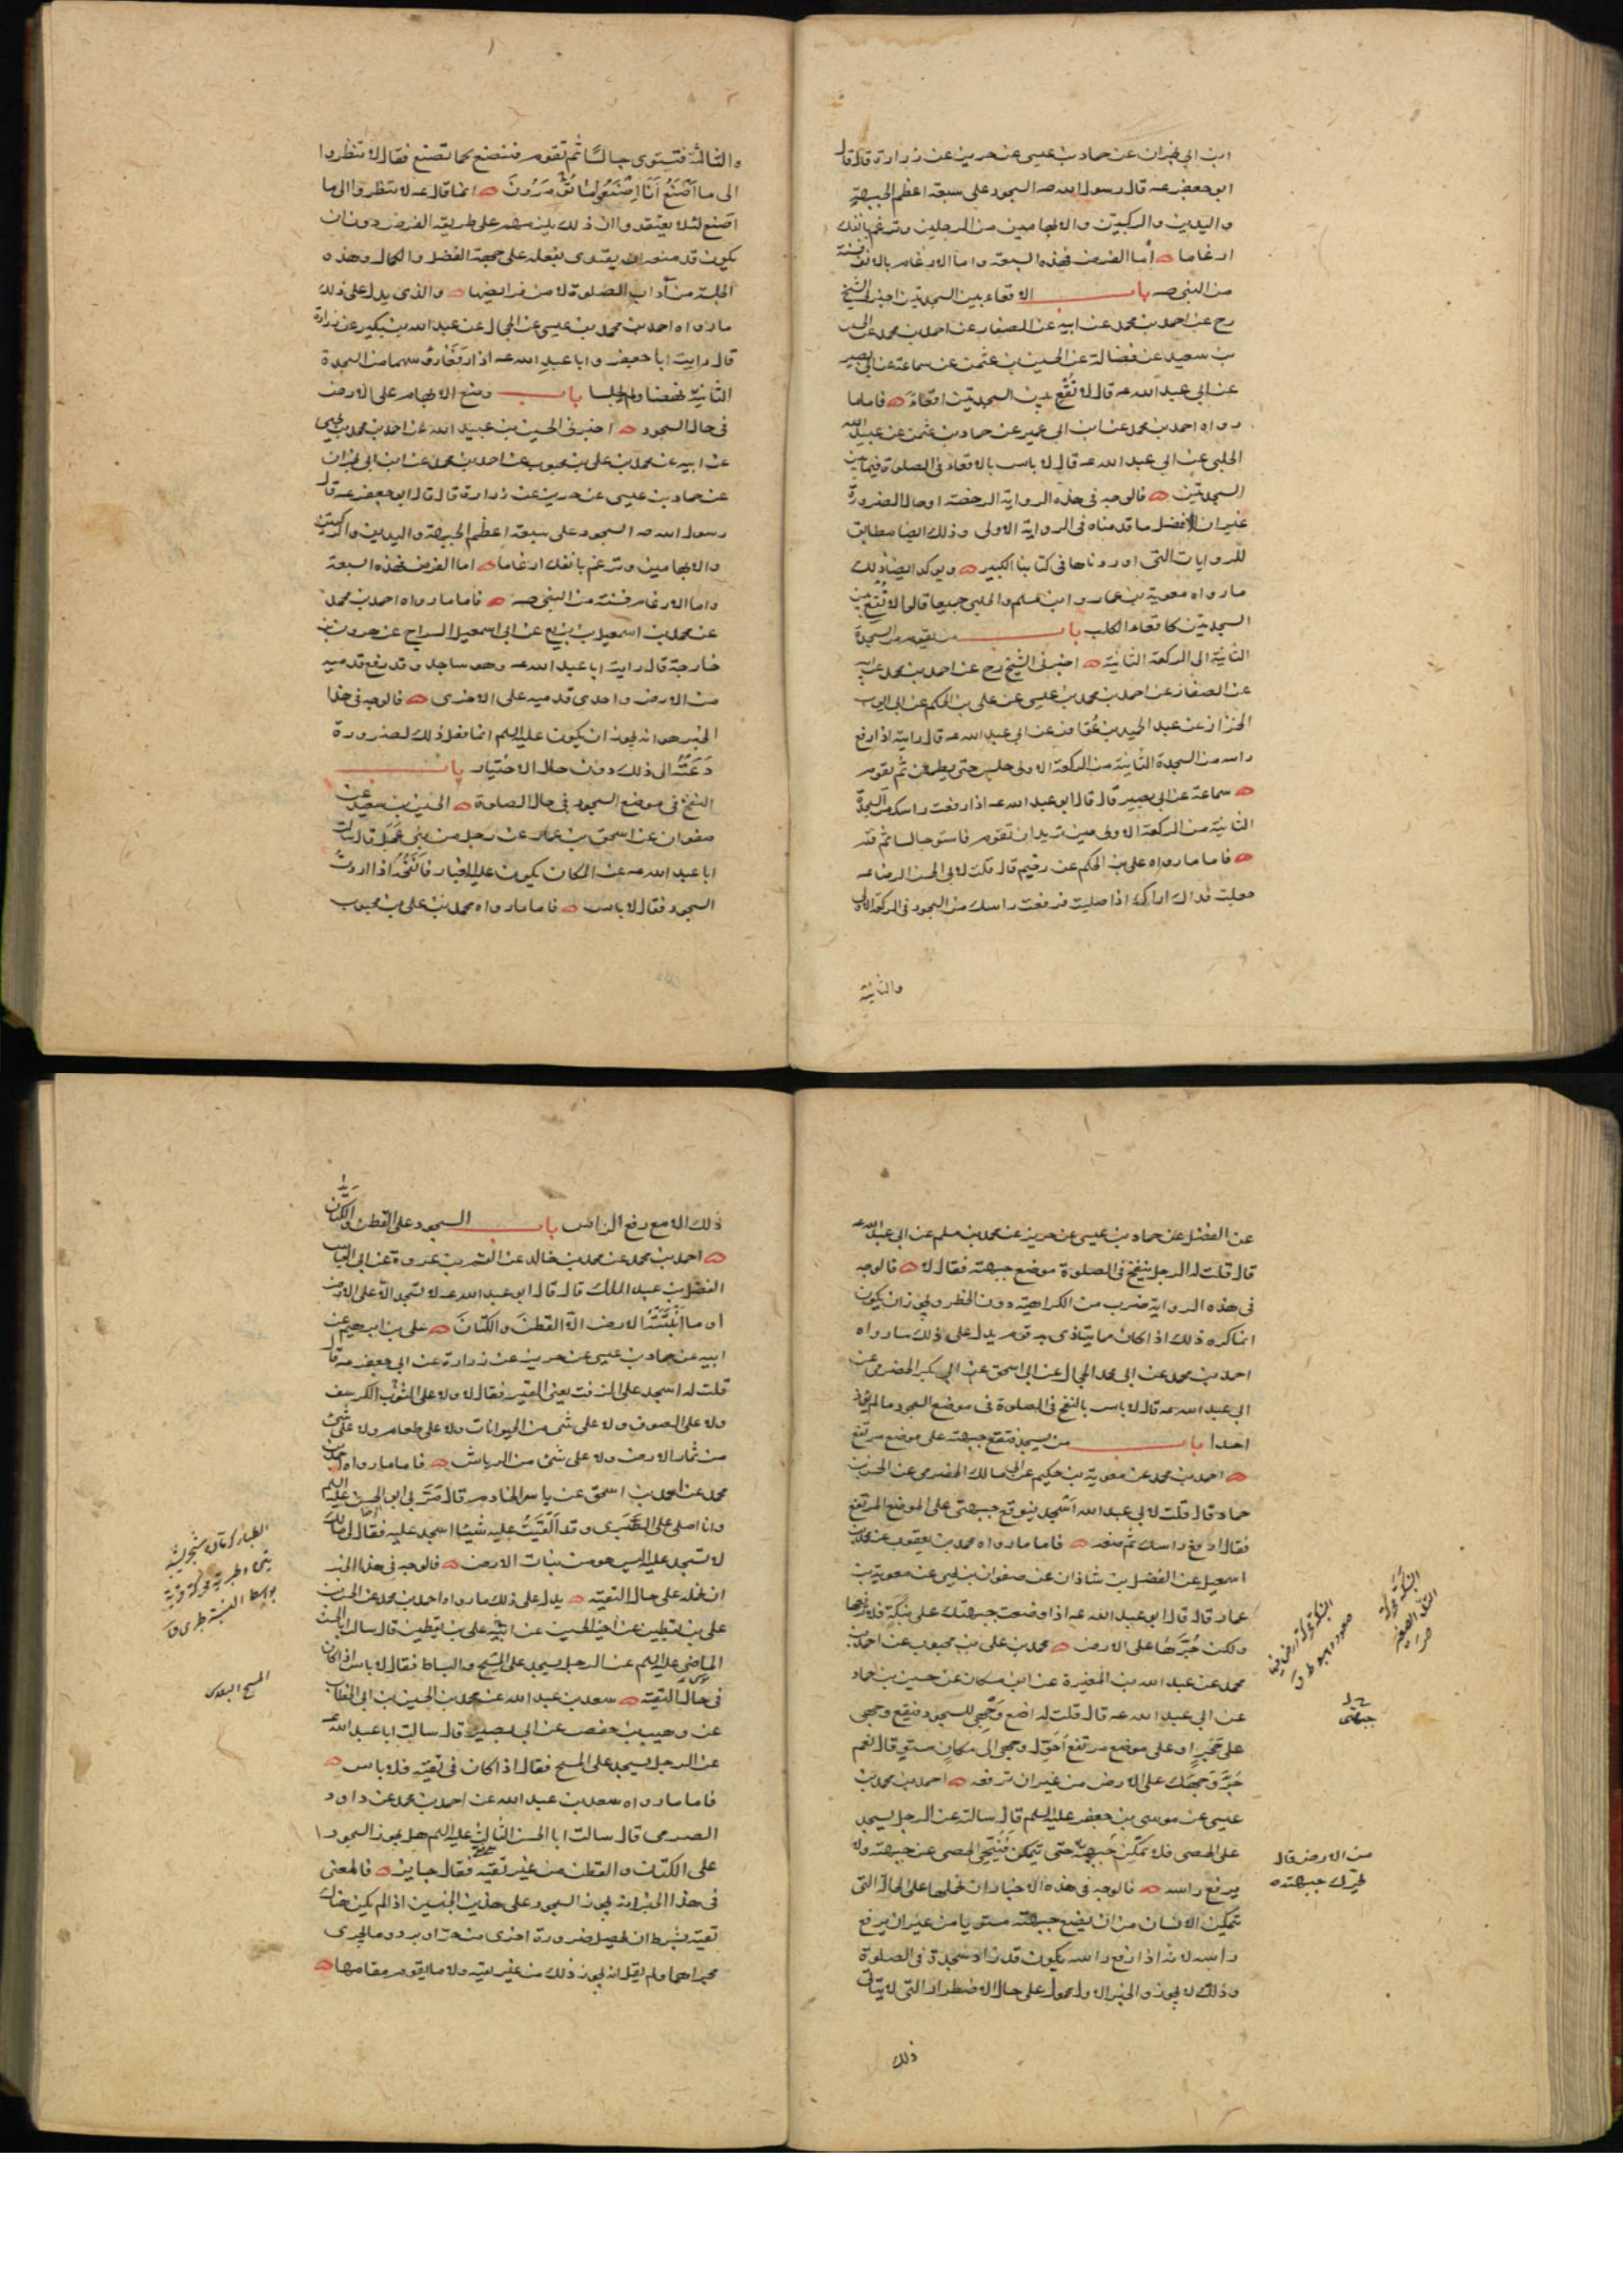 ابن ابي نجران عن حماد بن عيسى عن حريز عن زرارة قال قال
ابو جعفر عه قال رسول الله صه السجود على سبعة اعظم الجبهة
واليدين والركبتين والابهامين من الرجلين وترغم بانفك
ارغاما اما الفرض فهذه السبعة واما الارغام بالانف فسنة
من النبي صه باب الاقعاء بين السجدتين اخبرني الشيخ
رح عن احمد بن محمد عن ابيه عن الصفار عن احمد بن محمد عن الحسين
بن سعيد عن فضالة عن الحسين بن عثمن عن سماعة عن ابي بصير
عن ابي عبد الله عه قال لا تُقْعِ بين السجدتين اقعاءً فاما ما
رواه احمد بن محمد عن ابن ابي عمير عن حماد بن عثمن عن عبيد الله
الحلبي عن ابي عبد الله عه قال لا باس بالاقعاء في الصلوة فيما بين
السجدتين فالوجه في هذه الرواية الرخصة او حال الضرورة
غير ان الافضل ما قدمناه في الرواية الاولى وذلك ايضا مطابق
للروايات التي اوردناها في كتابنا الكبير ويوكد ايضا ذلك
ما رواه معوية بن عمار وابن مسلم والحلبي جميعا قالوا لا تُقْعِ بين
السجدتين كاقعاء الكلب باب من يقوم من السجدة
الثانية الى الركعة الثانية اخبرني الشيخ رح عن احمد بن محمد عن ابيه
عن الصفار عن احمد بن محمد بن عيسى عن علي بن الحكم عن ابي ايوب
الخزاز عن عبد الحميد بن عواض عن ابي عبد الله عه قال رايته اذا رفع
راسه من السجدة الثانية من الركعة الاولى جلس حتى يطمئن ثم يقوم
سماعة عن ابي بصير قال قال ابو عبد الله عه اذا رفعت راسك من السجدة
الثانية من الركعة الاولى حين تريد ان تقوم فاستو جالسا ثم قم
فاما ما رواه علي بن الحكم عن رحيم قال قلت لابي الحسن الرضا عه
جعلت فداك اراك اذا صليت فرفعت راسك من السجود في الركعة الاولى
والثانية
والثالثة فتستوي جالسًا ثم تقوم فنصنع كما تصنع فقال لا تنظروا
الى ما اَصْنَعُ اَنَا اِصْنَعُوا ما تُؤْمَرُونَ انما قال عه لا تنظروا الى ما
اَصنع لئلا يعتقدوا ان ذلك يلزمهم على طريقة الفرض دون ان
يكون قد منعه ان يقتدى بفعله على جهة الفضل والكمال وهذه
الجلسة من آداب الصلوة لا من فرايضها والذي يدل على ذلك
ما رواه احمد بن محمد بن عيسى عن الحجال عن عبد الله بن بكير عن زرارة
قال رايت ابا جعفر وابا عبد الله عه اذا رفعا رؤسهما من السجدة
الثانية نهضا ولم يجلسا باب وضع الابهام على الارض
في حال السجود اخبرني الحسين بن عبيد الله عن احمد بن محمد بن يحيى
عن ابيه عن محمد بن علي بن محبوب عن احمد بن محمد عن ابن ابي نجران
عن حماد بن عيسى عن حريز عن زرارة قال قال ابو جعفر عه قال
رسول الله صه السجود على سبعة اعظم الجبهة واليدين والركبتين
والابهامين وترغم بانفك ارغاما اما الفرض فهذه السبعة
واما الارغام فسنة من النبي صه فاما ما رواه احمد بن محمد
عن محمد بن اسمعيل بن بزيع عن ابي اسمعيل السراج عن هرون بن
خارجة قال رايت ابا عبد الله عه وهو ساجد وقد رفع قدميه
من الارض واحدى قدميه على الاخرى فالوجه في هذا
الخبر هو انه يجوز ان يكون عليه السلم انما فعل ذلك لضرورة
دَعَتْهُ الى ذلك دون حال الاختيار باب
النفخ في موضع السجود في حال الصلوة الحسين بن سعيد عن
صفوان عن اسحق بن عمار عن رجل من بني عجل قال سالت
ابا عبد الله عه عن المكان يكون عليه الغبار فانفخه اذا اردت
السجود فقال لا باس فاما ما رواه محمد بن علي بن محبوب
عن الفضل عن حماد بن عيسى عن حريز عن محمد بن مسلم عن ابي عبد الله عه
قال قلت له الرجل ينفخ في الصلوة موضع جبهته فقال لا فالوجه
في هذه الرواية ضرب من الكراهية دون الحظر ويجوز ان يكون
انما كره ذلك اذا كان مما يتاذى به قوم يدل على ذلك ما رواه
احمد بن محمد عن ابي محمد الحجال عن ابي اسحق عن ابي بكر الحضرمي عن
ابي عبد الله عه قال لا باس بالنفخ في الصلوة في موضع السجود ما لم يوذ
احدا باب من يسجد فتقع جبهته على موضع مرتفع
احمد بن محمد عن معوية بن حكيم عن ابي مالك الحضرمي عن الحسن بن
حماد قال قلت لابي عبد الله اَسْجد فتقع جبهتي على الموضع المرتفع
فقال ارفع راسك ثم ضعه فاما ما رواه محمد بن يعقوب عن محمد بن
اسمعيل عن الفضل بن شاذان عن صفوان بن يحيى عن معوية بن
عمار قال قال ابو عبد الله عه اذا وضعت جبهتك على نبكة فلا ترفعها
ولكن جُرَّها على الارض محمد بن علي بن محبوب عن احمد بن
محمد عن عبد الله بن المغيرة عن ابن مسكان عن حسين بن حماد
عن ابي عبد الله عه قال قلت له اضع وجهي للسجود فيقع وجهي
على حَجَرٍ او على موضع مرتفع اُحَوِّل وجهي الى مكانٍ مستوٍ قال نعم
جُرَّ وَجهَكَ على الارض من غير ان ترفعه احمد بن محمد بن
عيسى عن موسى بن جعفر عليه السلم قال سالته عن الرجل يسجد
على الحصى فلا تمكِّن جَبهته حتى تتمكن فيُنَحِّي الحصى عن جبهته ولا
يرفع راسه فالوجه في هذه الاخبار ان نحملها على الحال التي
تتمكن الانسان من ان يضع جبهته مستويا من غير ان يرفع
راسه لانه اذا رفع راسه يكون قد زاد سجدة في الصلوة
وذلك لا يجوز والخبر الاول محمول على حال الاضطرار التي لا يتاتى
من الارض قال
يحرك جبهته
ذلك
ذلك الا مع رفع الراس باب السجود على القطن والكتّان
احمد بن محمد عن محمد بن خالد عن القسم بن عروة عن ابي العباس
الفضل بن عبد الملك قال قال ابو عبد الله عه لا تسجد الا على الارض
او ما اَنْبَتَتْهُ الارض الا القطنَ والكتّانَ علي بن ابرهيم عن
ابيه عن حماد بن عيسى عن حريز عن زرارة عن ابي جعفر عه قال
قلت له اسجد على الزفت يعني القير فقال لا ولا على الثوب الكرسف
ولا على الصوف ولا على شي من الحيوانات ولا على طعام ولا على شي
من ثمار الارض ولا على شي من الرياش فاما ما رواه احمد بن
محمد عن احمد بن اسحق عن ياسر الخادم قال مَرَّ بي ابو الحسن عليه السلم
وانا اصلي على الطبري وقد اَلْقَيْتُ عليه شيئًا اسجد عليه فقال لي ما لك
لا تسجد عليه اليس هو من نبات الارض فالوجه في هذا الخبر
ان نحمله على حال التقية يدل على ذلك ما رواه احمد بن محمد عن الحسن بن
علي بن يقطين عن اخيه الحسين عن ابيه علي بن يقطين قال سالت ابا الحسن
الماضي عليه السلم عن الرجل يسجد على المسح والبساط فقال لا باس اذا كان
في حال التقية سعد بن عبد الله عن محمد بن الحسين بن ابي الخطاب
عن وهيب بن حفص عن ابي بصير قال سالت ابا عبد الله عه
عن الرجل يسجد على المسح فقال اذا كان في تقية فلا باس
فاما ما رواه سعد بن عبد الله عن احمد بن محمد عن داود
الصرمي قال سالت ابا الحسن الثالث عليه السلم هل يجوز السجود
على الكتّان والقطن من غير تقية فقال جايز فالمعنى
في هذا الخبر انه يجوز السجود على هذين الجنسين اذا لم يكن هناك
تقية بشرط ان تحصل ضرورة اخرى من حر او برد وما يجري
مجراهما ولم يقل انه يجوز ذلك من غير تقية ولا ما يقوم مقامها